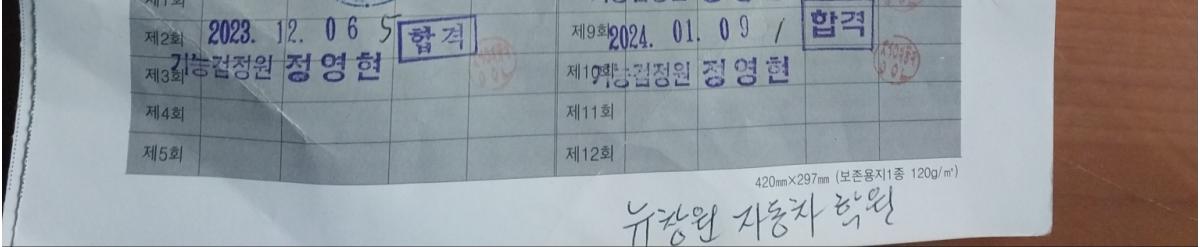 제2회 2023. 12. 06 5 합격 제9회 2024. 01. 09 / 합격
제3회 기능검정원 정영현 제10회 기능검정원 정영현
제4회 제11회
제5회 제12회
420mm×297mm (보존용지1종 120g/㎡)
뉴창원 자동차 학원